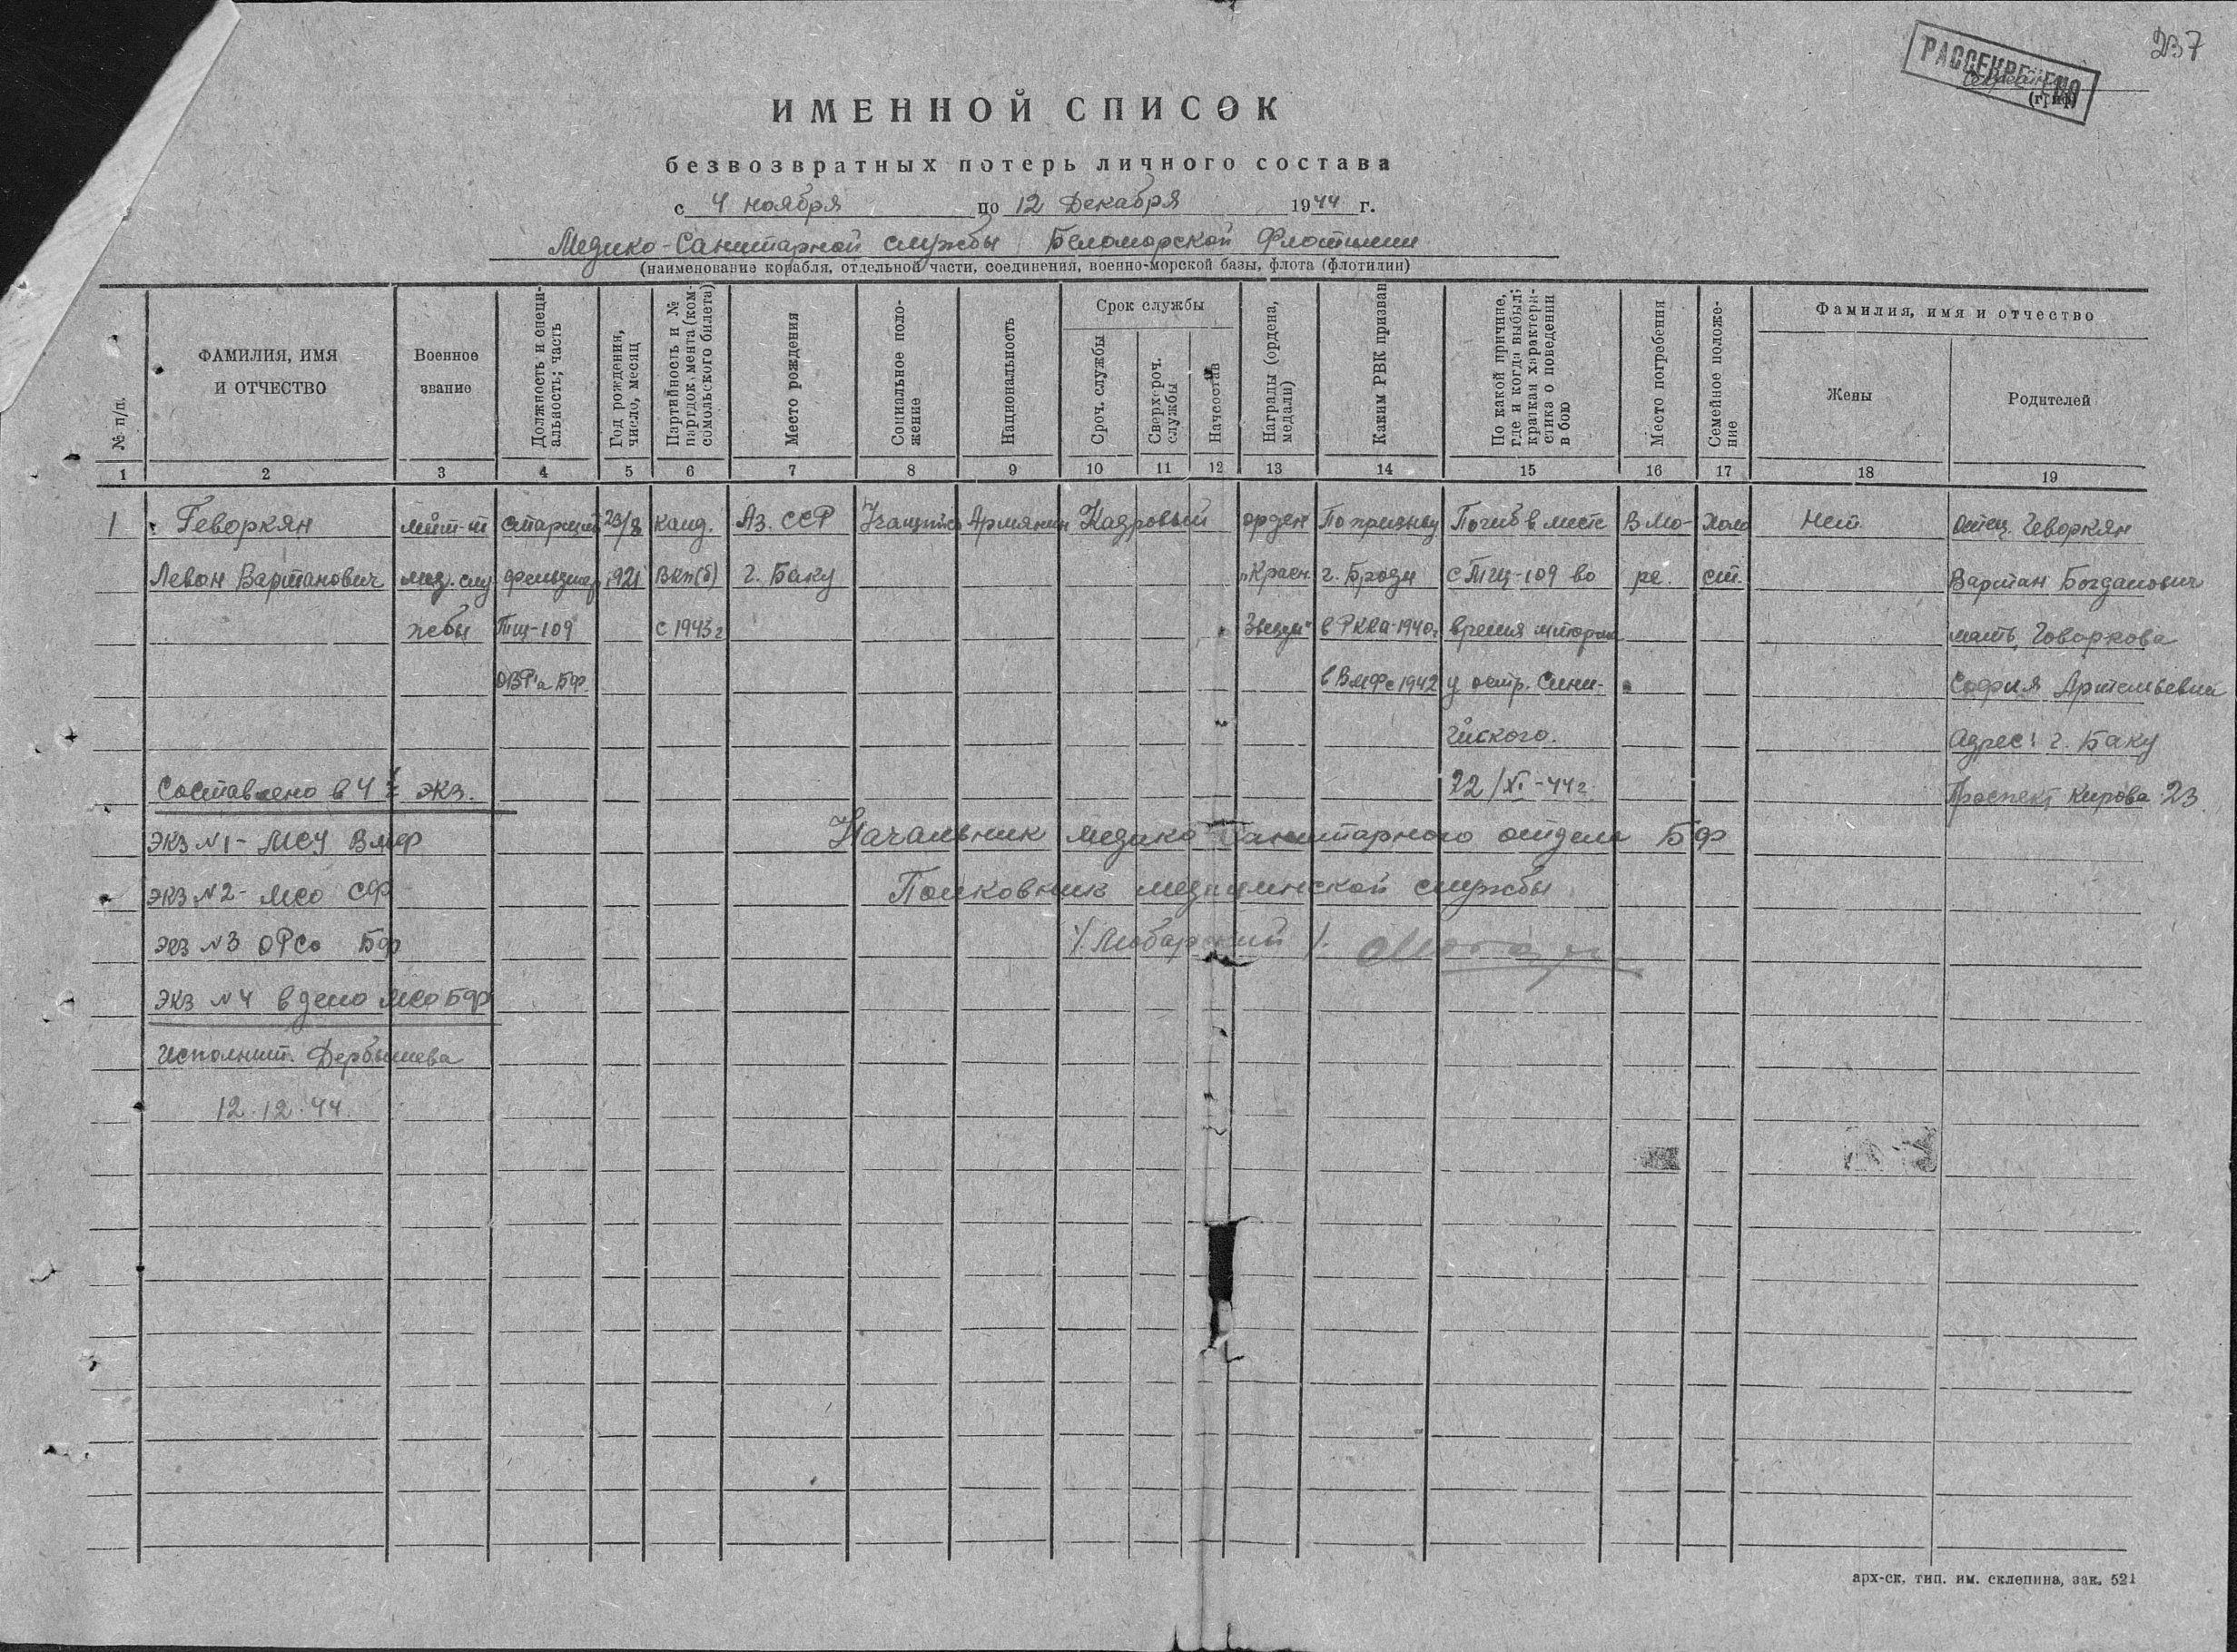 237
РАССЕКРЕЧЕНО
(гриф)
ИМЕННОЙ СПИСОК
безвозвратных потерь личного состава
с 4 ноября по 12 Декабря 1944 г.
Медико-Санитарной службы Беломорской Флотилии
(наименование корабля, отдельной части, соединения, военно-морской базы, флота (флотилии)
№ п/п.
ФАМИЛИЯ, ИМЯ
И ОТЧЕСТВО
Военное
звание
Должность и специ-
альность; часть
Год рождения,
число, месяц
Партийность и №
партдокумента (ком-
сомольского билета)
Место рождения
Социальное поло-
жение
Национальность
Срок службы
Сроч. службы
Сверхсроч.
службы
Начсостав
Награды (ордена,
медали)
Каким РВК призван
По какой причине,
где и когда выбыл;
краткая характери-
стика о поведении
в бою
Место погребения
Семейное положе-
ние
Фамилия, имя и отчество
Жены
Родителей
1 2 3 4 5 6 7 8 9 10 11 12 13 14 15 16 17 18 19
1 Геворкян мл. л-т старший 23/8 канд. Аз. ССР Учащийся Армянин Кадровый орден По призыву Погиб в месте В Мо- Холо Нет Отец Геворкян
Леван Вартанович мед. слу фельдшер 1921 ВКП(б) г. Баку "Красн. г. Броды с ТЩ-109 во ре. ст. Вартан Богданович
жебы ТЩ-109 с 1943 г Звезды" в РККА-1940г время шторма мать Геворкова
ОВР'а БФ в ВМФ с 1942 у остр. Сени- София Артемьевна
Адрес: г. Баку
Составлено в 4 х экз. 22/XI-44 г. Проспект Кирова 23
экз N1- МСУ ВМФ Начальник Медико Санитарного отдела БФ
экз N2- МСО СФ Полковник медицинской службы
экз N3 ОРСО БФ /Любарский/.
экз N4 в дело МСО БФ
Исполнит. Дербышева
12.12.44.
арх-ск. тип. им. склепина, зак. 521